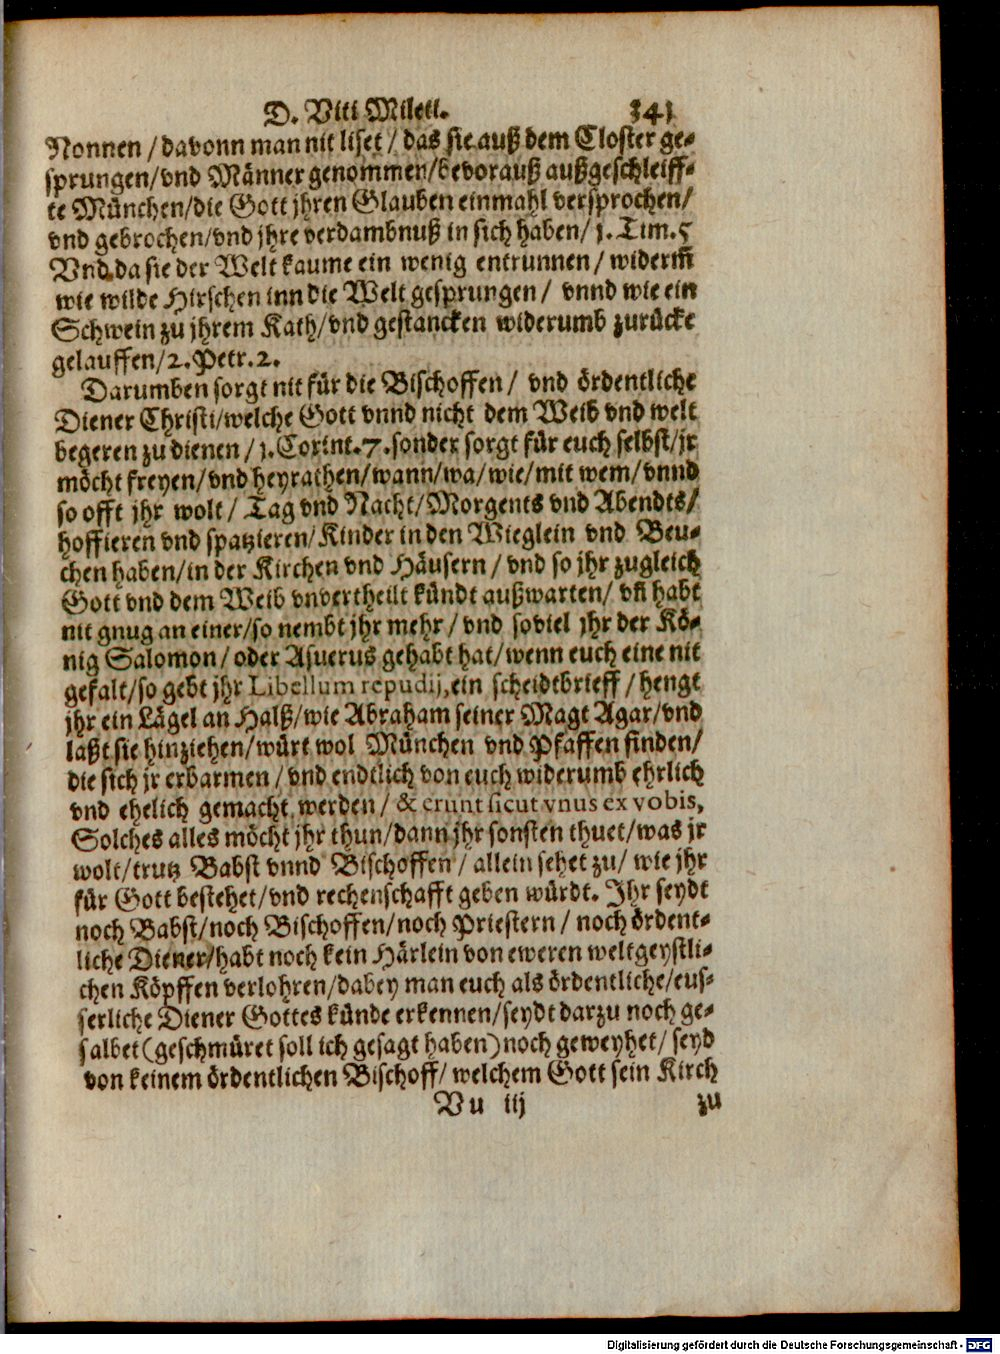 D. Viti Mileti. 341
Nonnen / davonn man nit liset / das sie auß dem Closter ge-
sprungen/vnd Männer genommen/bevorauß außgeschleiff-
te München/die Gott jhren Glauben einmahl versprochen/
vnd gebrochen/vnd jhre verdambnuß in sich haben/ 1. Tim. 5
Vnd da sie der Welt kaume ein wenig entrunnen / widerm̃
wie wilde Hirschen inn die Welt gesprungen / vnnd wie ein
Schwein zu jhrem Kath/vnd gestancken widerumb zurücke
gelauffen/2. Petr. 2.
Darumben sorgt nit für die Bischoffen / vnd ördentliche
Diener Christi/welche Gott vnnd nicht dem Weib vnd welt
begeren zu dienen / 1. Corint. 7. sonder sorgt für euch selbst/jr
möcht freyen/vnd heyrathen/wann/wa/wie/mit wem/vnnd
so offt jhr wolt / Tag vnd Nacht/Morgents vnd Abendts/
hoffieren vnd spatzieren/Kinder in den Wieglein vnd Beu-
chen haben/in der Kirchen vnd Häusern / vnd so jhr zugleich
Gott vnd dem Weib vnvertheilt kündt außwarten/ vñ habt
nit gnug an einer/so nembt jhr mehr / vnd soviel jhr der Kö-
nig Salomon/ oder Asuerus gehabt hat/wenn euch eine nit
gefalt/so gebt jhr Libellum repudij, ein scheidtbrieff / hengt
jhr ein Lägel an Halß/wie Abraham seiner Magt Agar/vnd
laßt sie hinziehen/würt wol München vnd Pfaffen finden/
die sich jr erbarmen / vnd endtlich von euch widerumb ehrlich
vnd ehelich gemacht werden / & erunt sicut vnus ex vobis,
Solches alles möcht jhr thun/dann jhr sonsten thuet/was jr
wolt/trutz Babst vnnd Bischoffen / allein sehet zu/ wie jhr
für Gott bestehet/vnd rechenschafft geben würdt. Ihr seydt
noch Babst/noch Bischoffen/noch Priestern / noch ördent-
liche Diener/habt noch kein Härlein von eweren weltgeystli-
chen Köpffen verlohren/dabey man euch als ördentliche/eus-
serliche Diener Gottes künde erkennen/seydt darzu noch ge-
salbet (geschmüret soll ich gesagt haben) noch geweyhet/ seyd
von keinem ördentlichen Bischoff/ welchem Gott sein Kirch
Vu iij zu
Digitalisierung gefördert durch die Deutsche Forschungsgemeinschaft - DFG